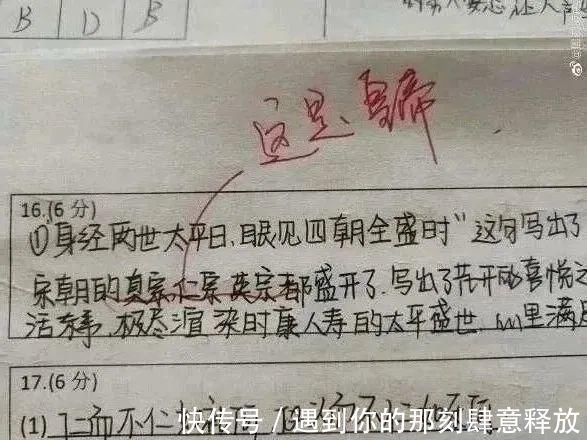 B D B
这是皇帝
16.(6 分)
①身经两世太平日,眼见四朝全盛时”这句写出了
宋朝的真宗仁宗英宗都盛开了.写出了花开的喜悦之
活东事,极尽渲染时康人寿的太平盛世.
17.(6 分)
(1) 仁而不仁
快传号 / 遇到你的那刻肆意释放